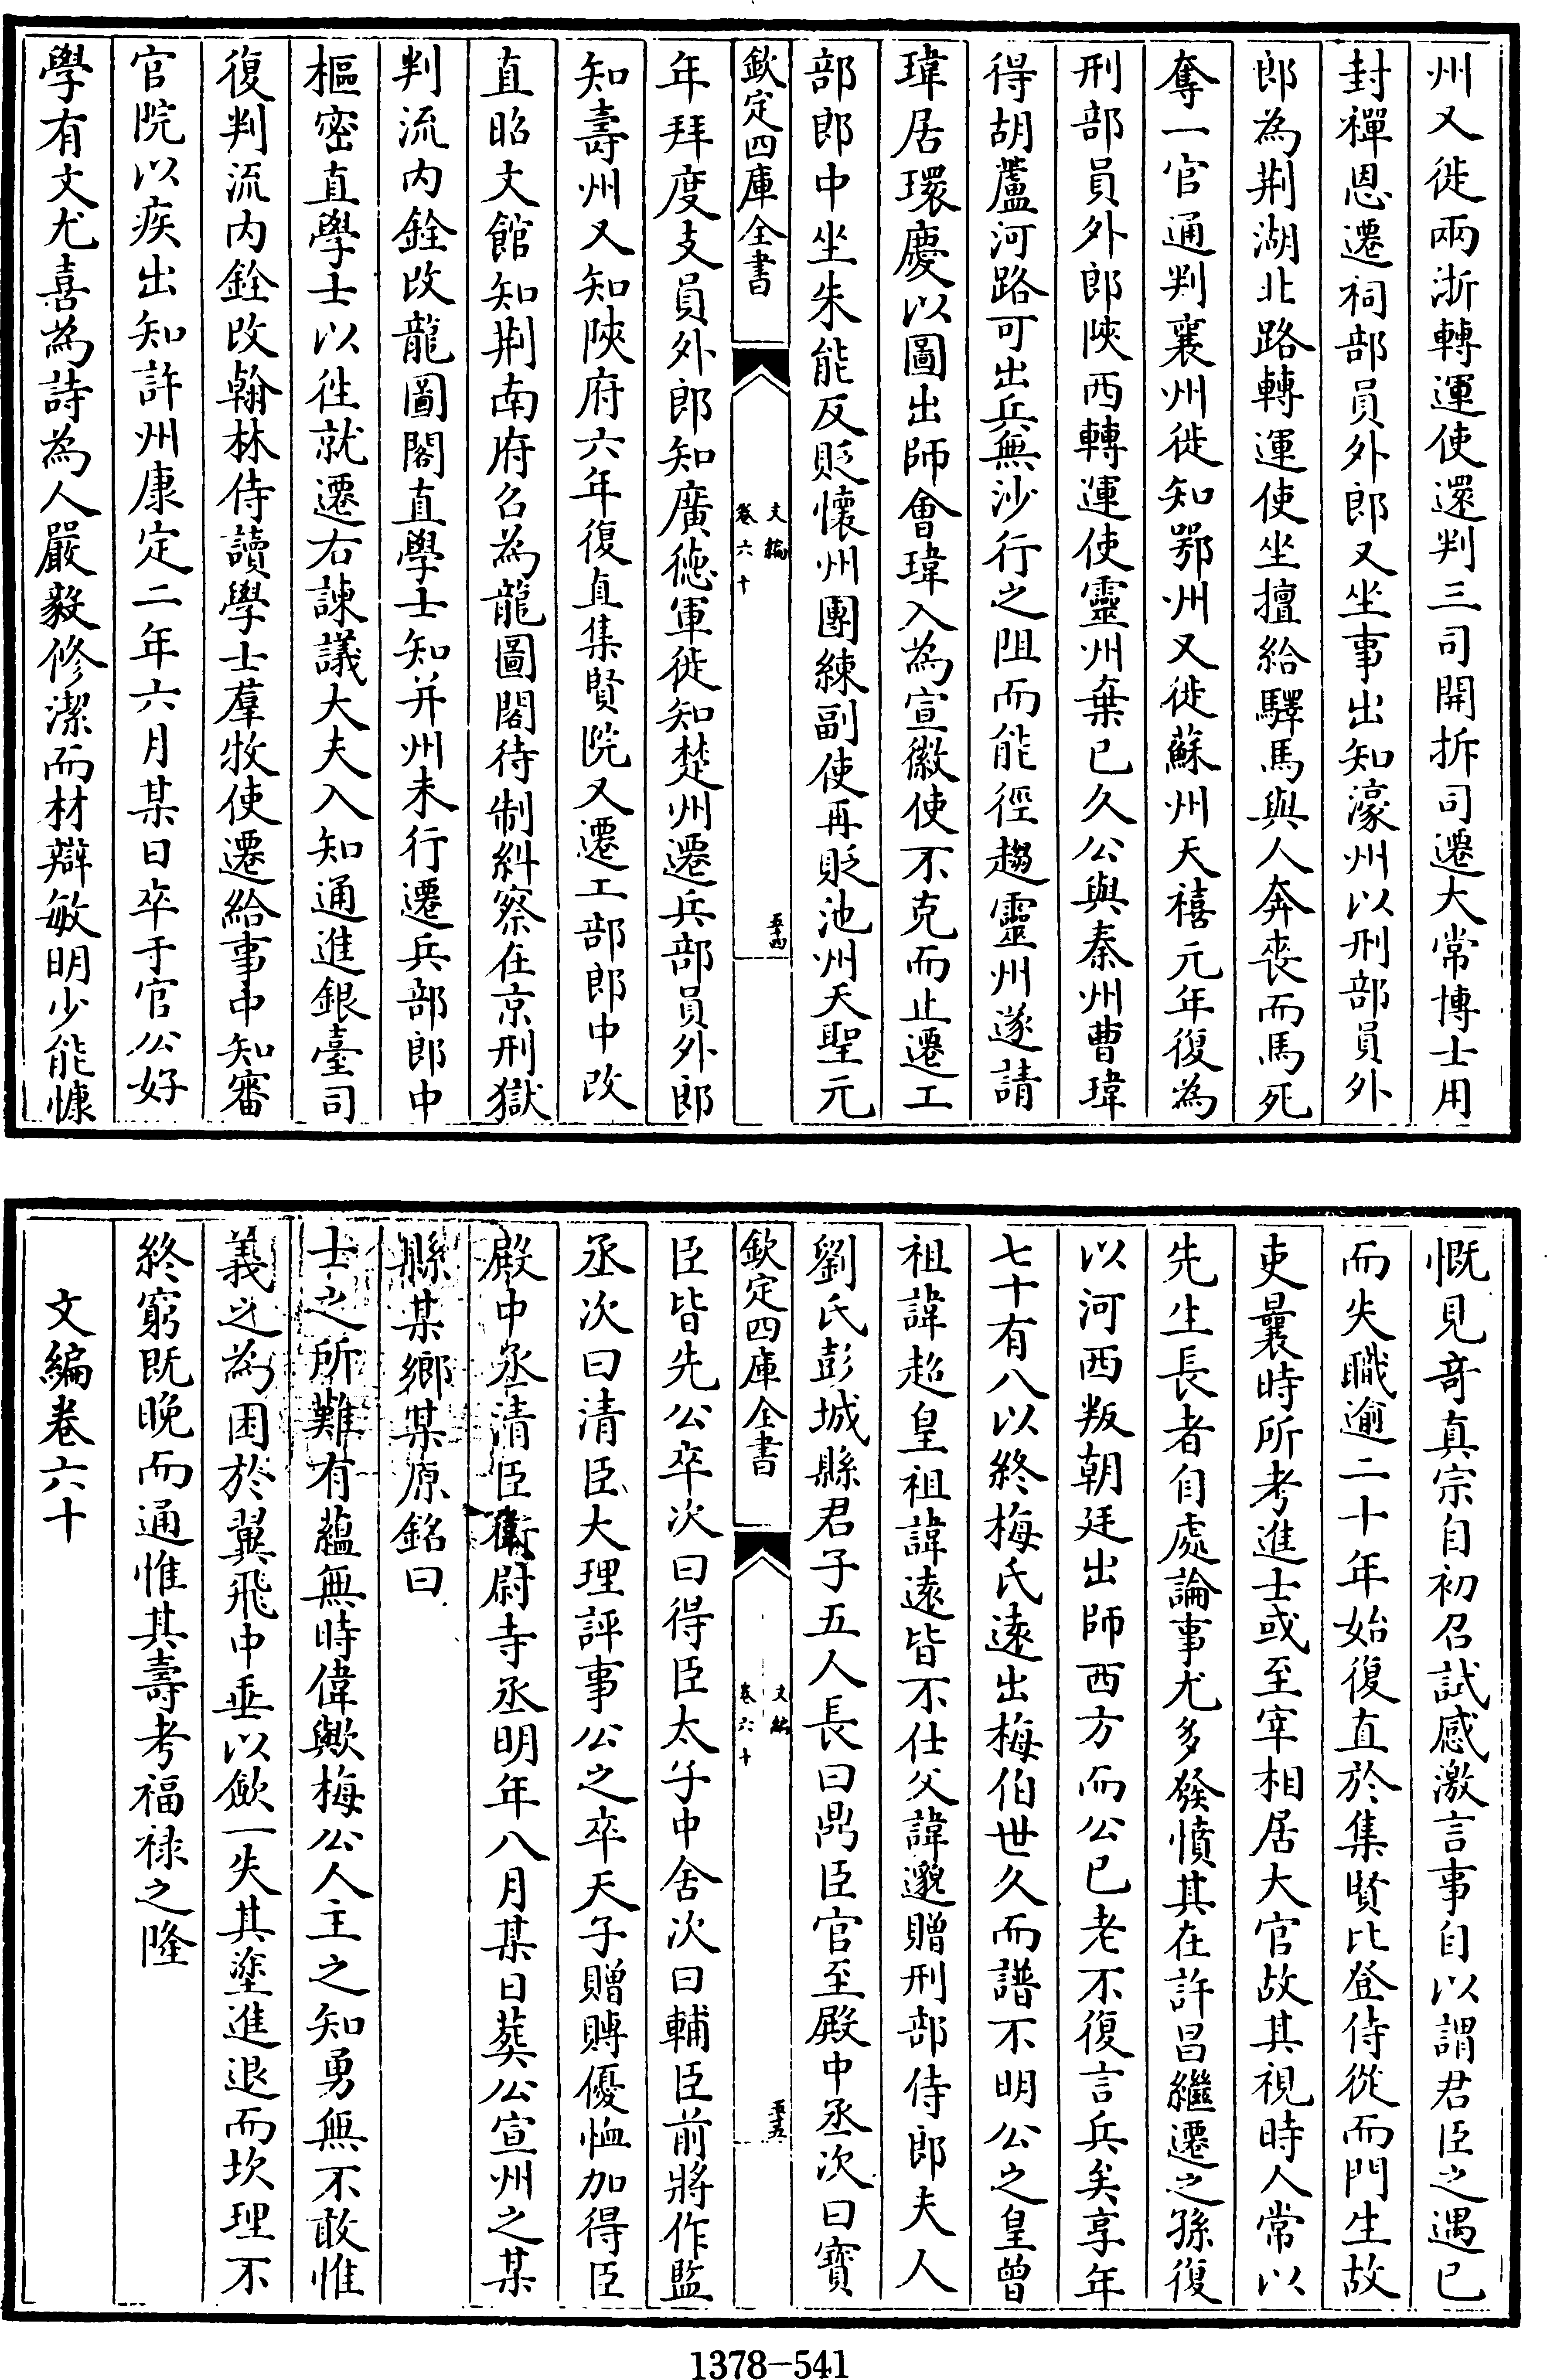 州又徙兩浙轉運使還判三司開拆司遷大常博士用
封禪恩遷祠部員外郎又坐事出知濠州以刑部員外
郎為荆湖北路轉運使坐擅給驛馬與人奔喪而馬死
奪一官通判襄州徙知鄂州又徙蘇州天禧元年復為
刑部員外郎陜西轉運使靈州棄已久公與秦州曹瑋
得胡蘆河路可出兵無沙行之阻而能徑趨靈州遂請
瑋居環慶以圖出師會瑋入為宣徽使不克而止遷工
部郎中坐朱能反貶懷州團練副使再貶池州天聖元
欽定四庫全書
文編
卷六十
五十四
年拜度支員外郎知廣徳軍徙知楚州遷兵部員外郎
知壽州又知陜府六年復直集賢院又遷工部郎中改
直昭文館知荆南府召為龍圖閣待制糾察在京刑獄
判流内銓改龍圖閣直學士知并州未行遷兵部郎中
樞密直學士以徃就遷右諫議大夫入知通進銀臺司
復判流内銓改翰林侍讀學士羣牧使遷給事中知審
官院以疾出知許州康定二年六月某日卒于官公好
學有文尤喜為詩為人嚴毅修潔而材辯敏明少能慷
慨見竒真宗自初召試感激言事自以謂君臣之遇已
而失職逾二十年始復直於集賢比登侍從而門生故
吏曩時所考進士或至宰相居大官故其視時人常以
先生長者自處論事尤多發憤其在許昌繼遷之孫復
以河西叛朝廷出師西方而公已老不復言兵矣享年
七十有八以終梅氏逺出梅伯世久而譜不明公之皇曾
祖諱超皇祖諱逺皆不仕父諱邈贈刑部侍郎夫人
劉氏彭城縣君子五人長曰鼎臣官至殿中丞次曰寳
欽定四庫全書
文編
卷六十
五十五
臣皆先公卒次曰得臣太子中舍次曰輔臣前將作監
丞次曰清臣大理評事公之卒天子贈賻優恤加得臣
殿中丞清臣衛尉寺丞明年八月某日葬公宣州之某
縣某鄉某原銘曰
士之所難有蘊無時偉歟梅公人主之知勇無不敢惟
義之為困於翼飛中垂以斂一失其塗進退而坎理不
終窮既晚而通惟其壽考福禄之隆
文編卷六十
1378-541